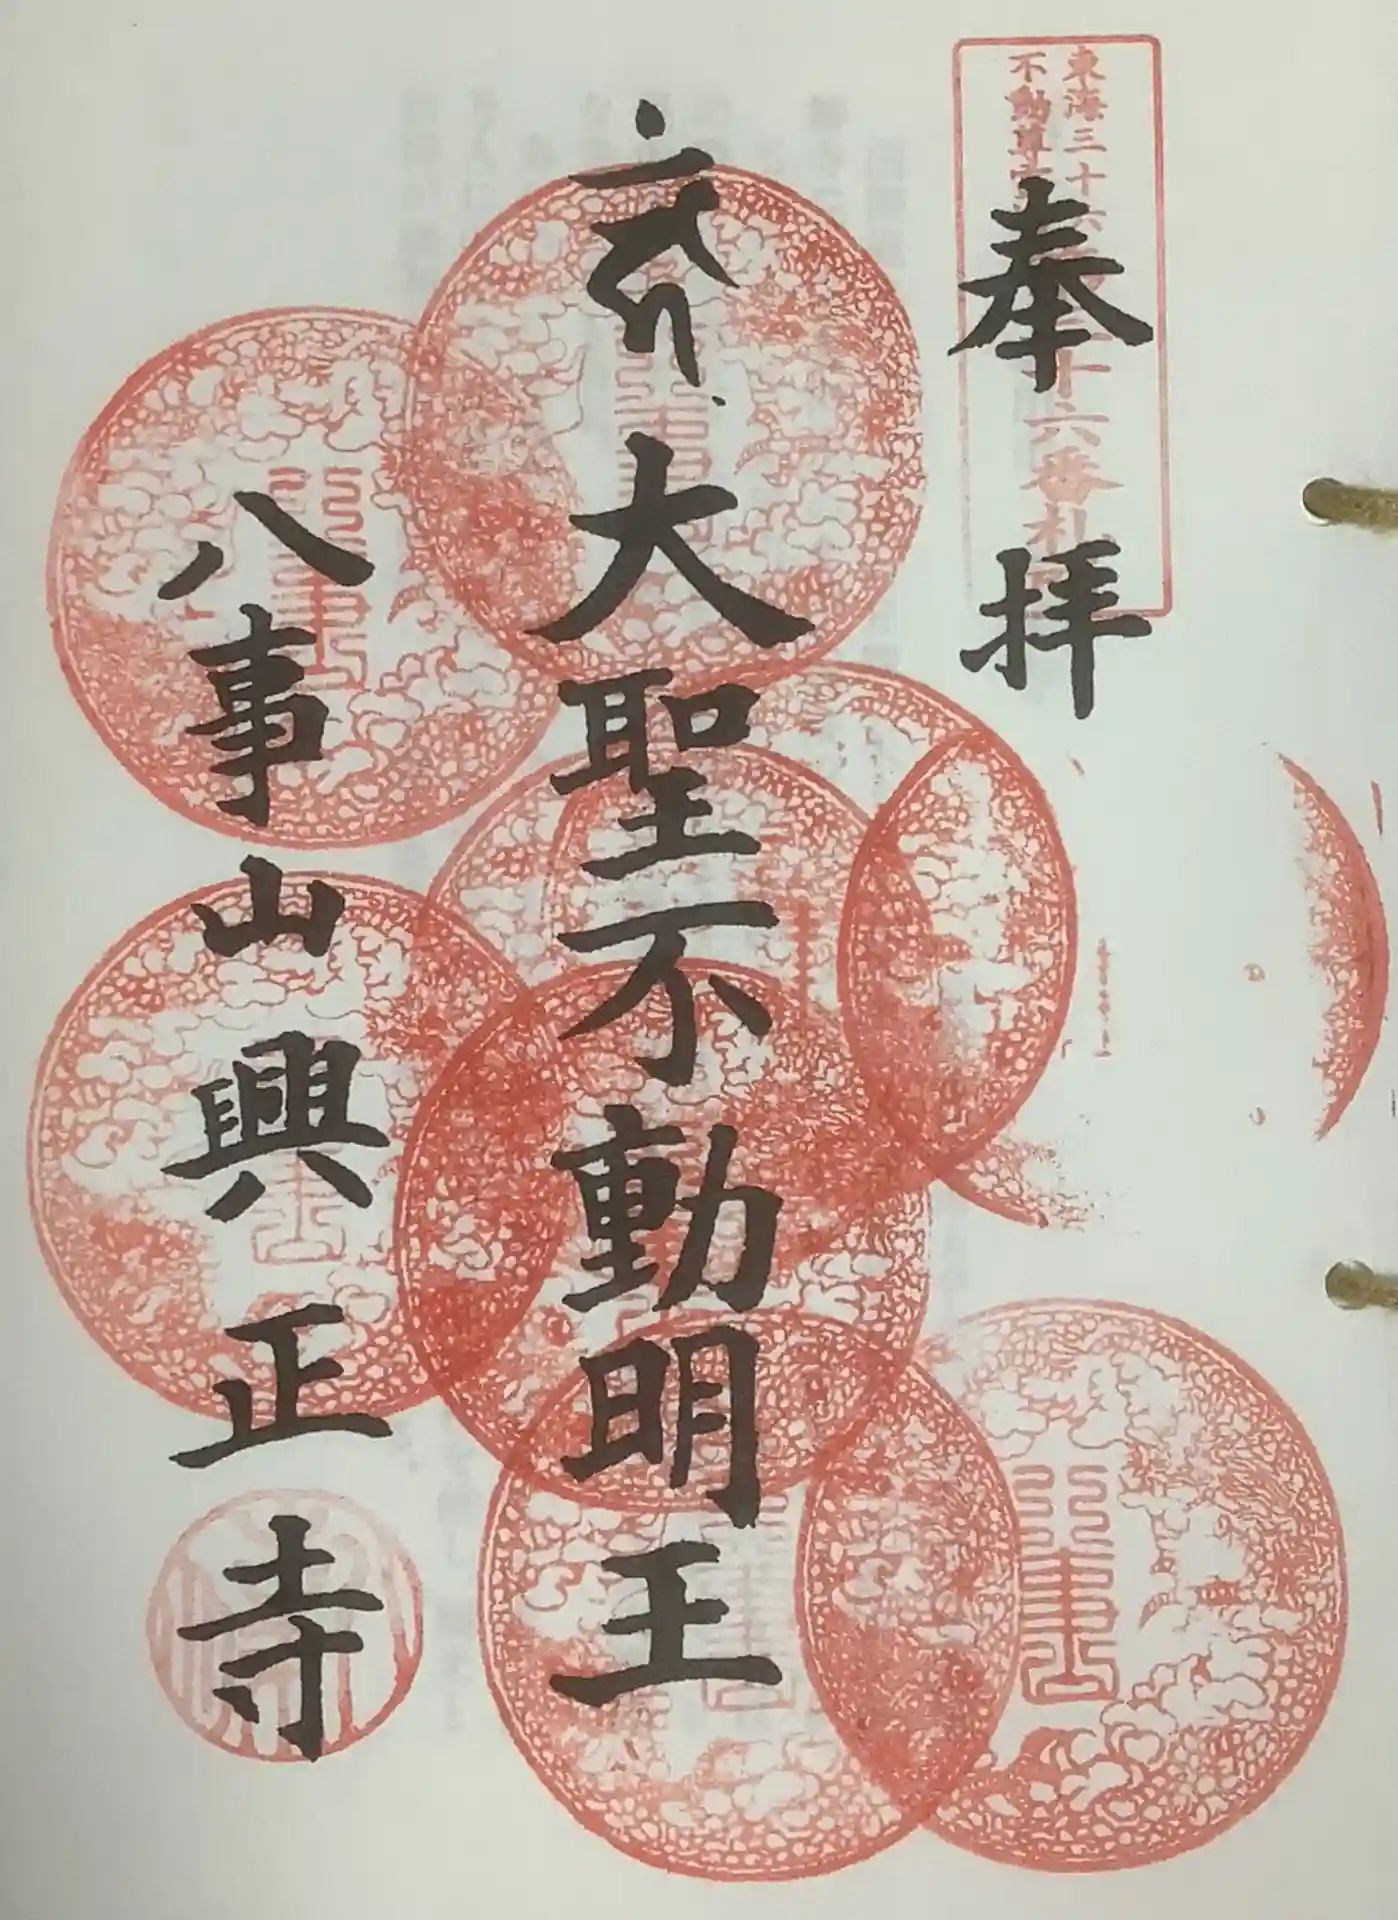 東海三十六
不動尊霊
十六番札
奉拝
大聖不動明王
八事山興正寺